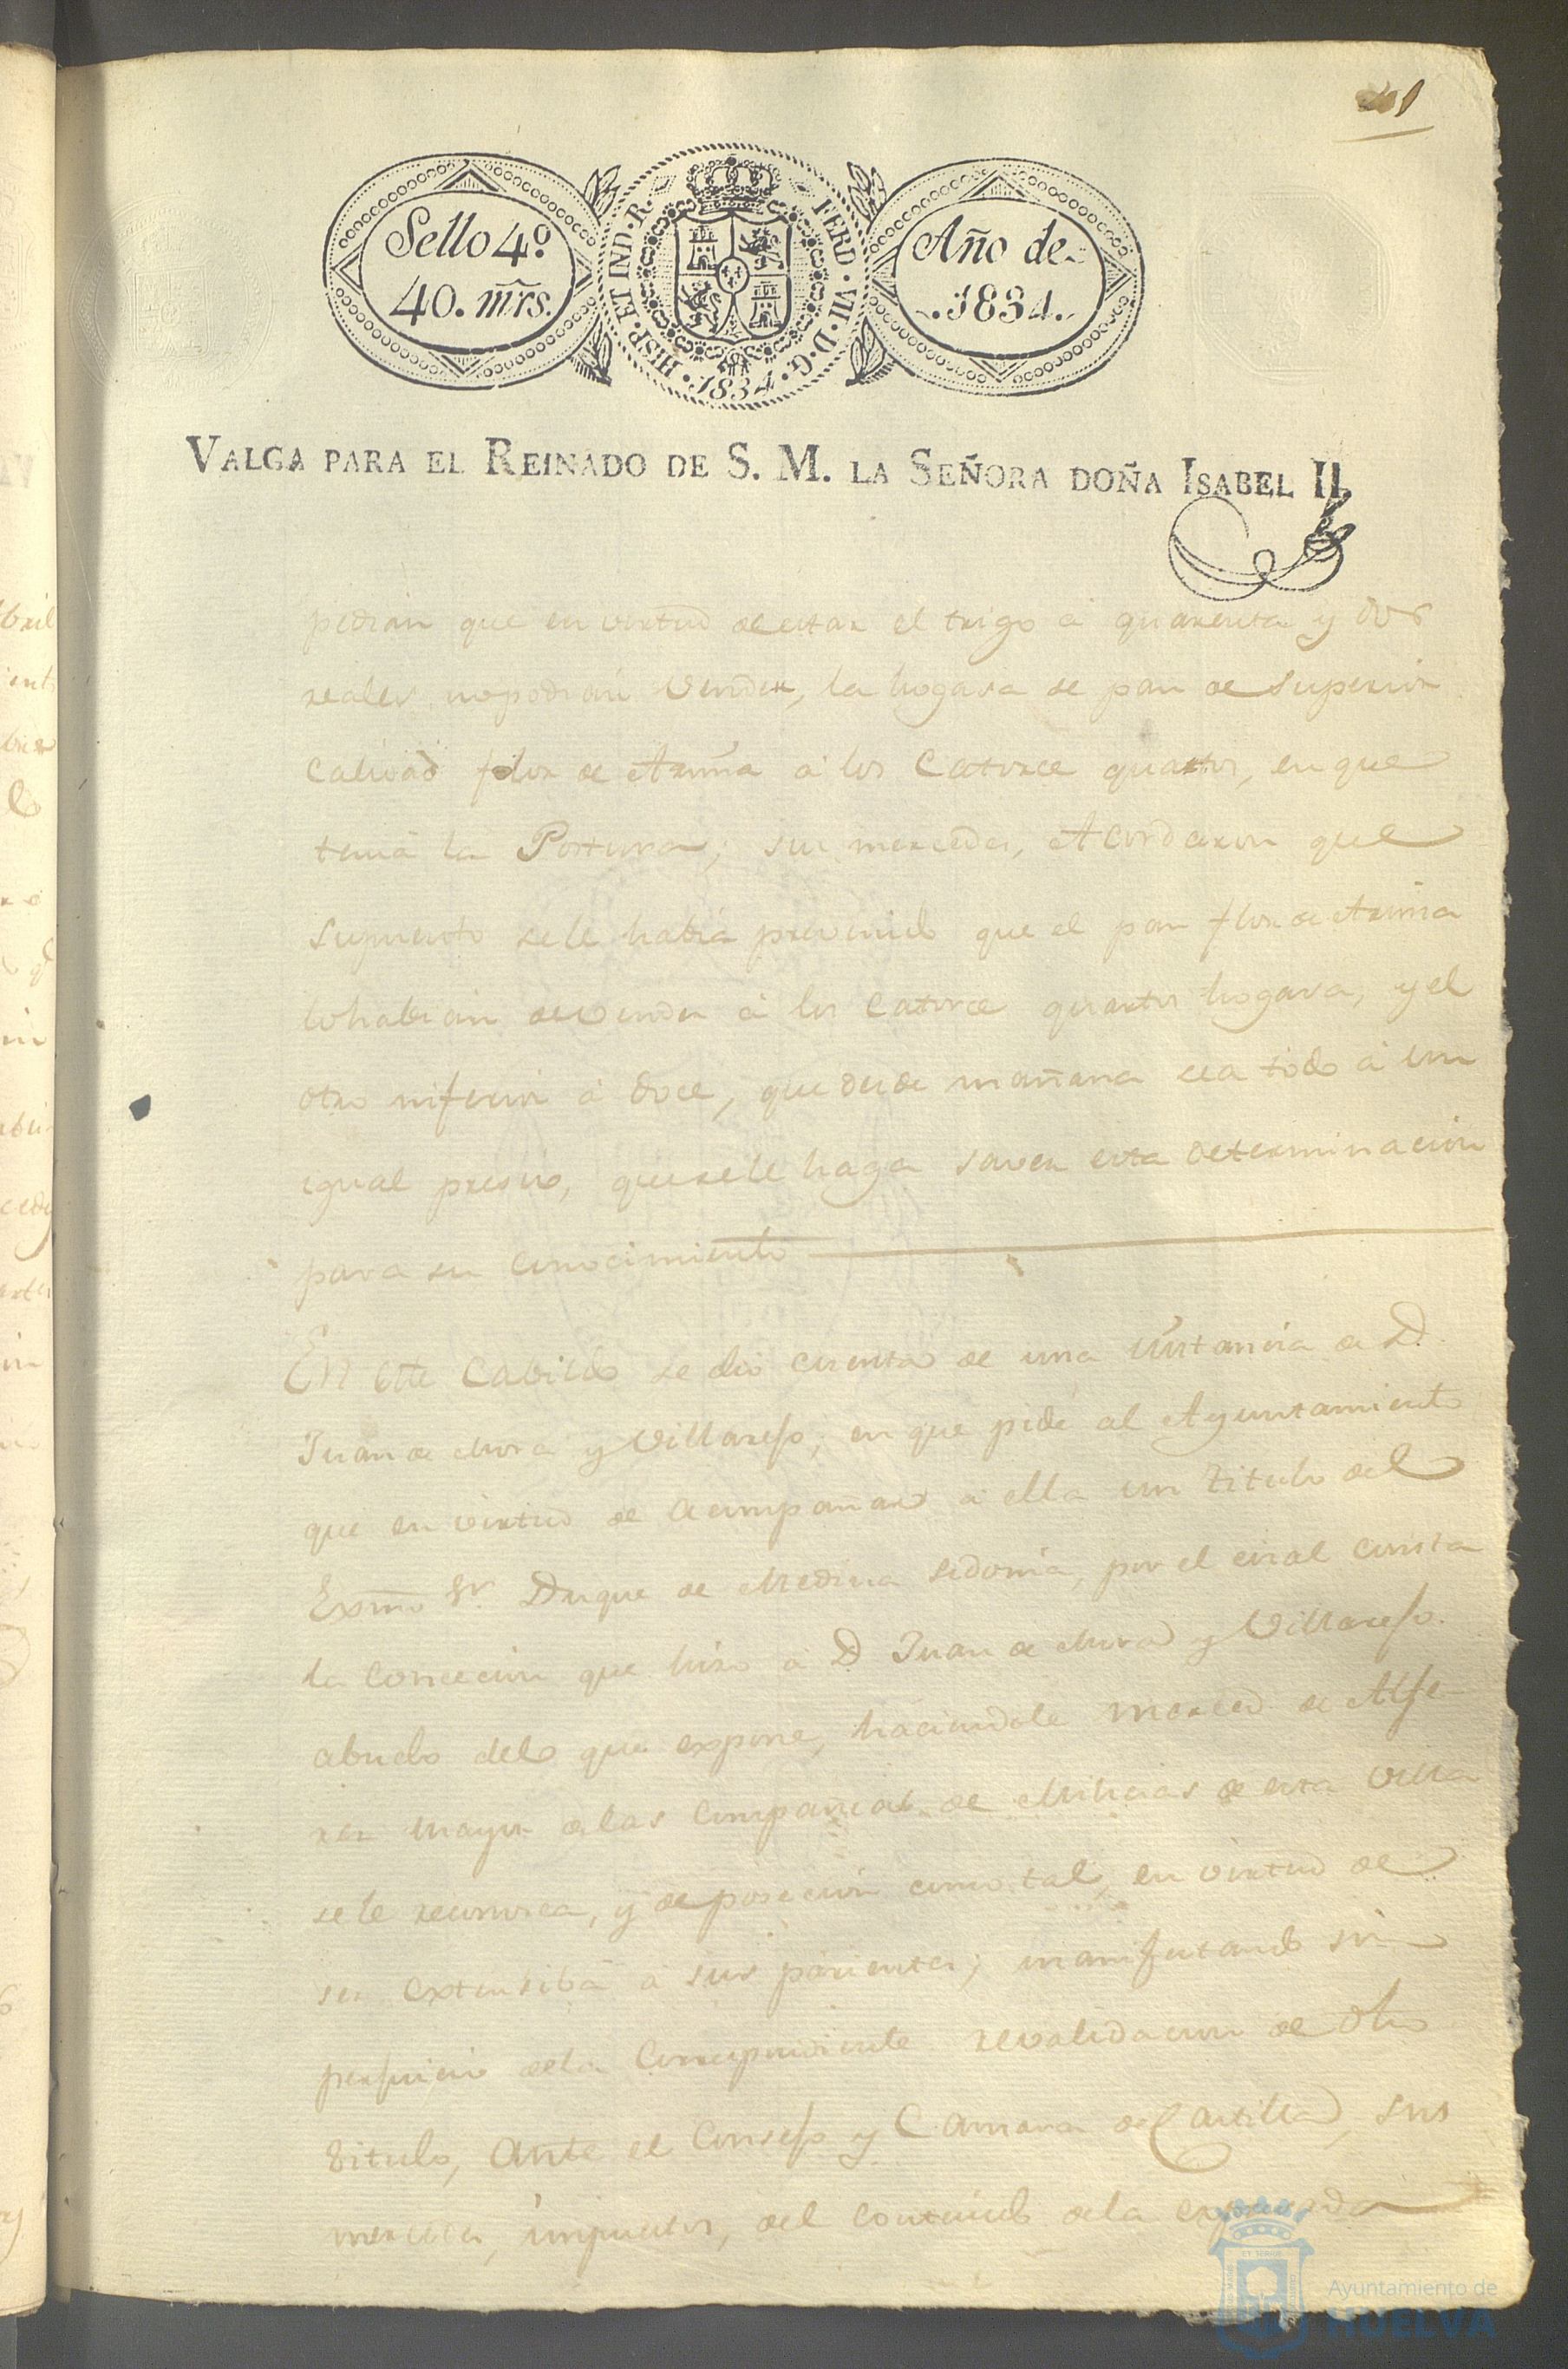 Sello 4º
40. mrs.
HISP. ET IND. R. FERD. VII. D. G. 1834.
Año de
1834.
VALGA PARA EL REINADO DE S. M. LA SEÑORA DOÑA ISABEL II.
pedian que en virtud de estar el trigo à quarenta y dos
reales no podian vender, la hogasa de pan de superior
calidad flor de Arina à los catorce quartos, en que
tenia la Postura; sus mercedes, Acordaron que
supuesto se le habia prevenido que el pan flor de Arina
lo habian de vender à los catorce quartos hogasa, y el
otro inferior à doce, que desde mañana sea todo à un
igual presio, que se le haga saver esta determinacion
para su conocimiento
En este Cabildo se dio cuenta de una instancia de D.
Juan de Mora y Villarejo; en que pide al Ayuntamiento
que en virtud de acompañar à ella un titulo del
Exmo Sr. Duque de Medina Sidonia, por el cual consta
la concecion que hizo à D Juan de Mora y Villarejo.
abuelo del que expone, haciendole merced de Alfe-
rez mayor de las Compañias de Milicias de esta Villa
se le reconosca, y de posecion como tal, en virtud de
ser extensiba à sus parientes; manifestando sin
perjuicio de la correspondiente revalidacion de dho
titulo, ante el Consejo y Camara de Castilla, sus
mercedes, impuestos, del contenido de la expresada
Ayuntamiento de
HUELVA